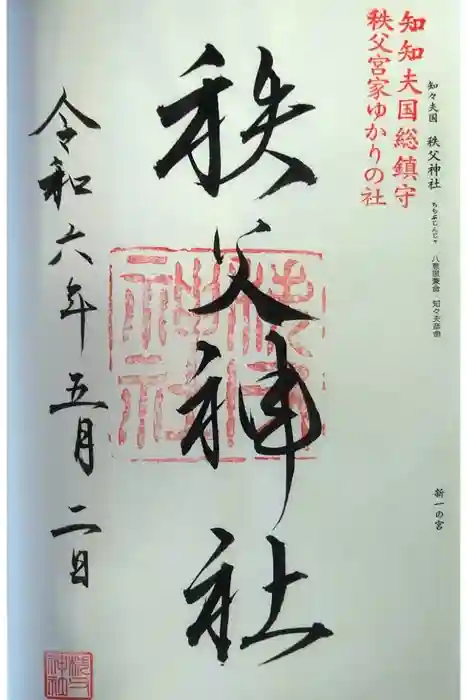 知々夫国 秩父神社 ちちぶじんじゃ 八意思兼命 知々夫彦命
新一の宮
知知夫国総鎮守
秩父宮家ゆかりの社
秩父神社
秩父神社
令和六年五月二日
秩父神社